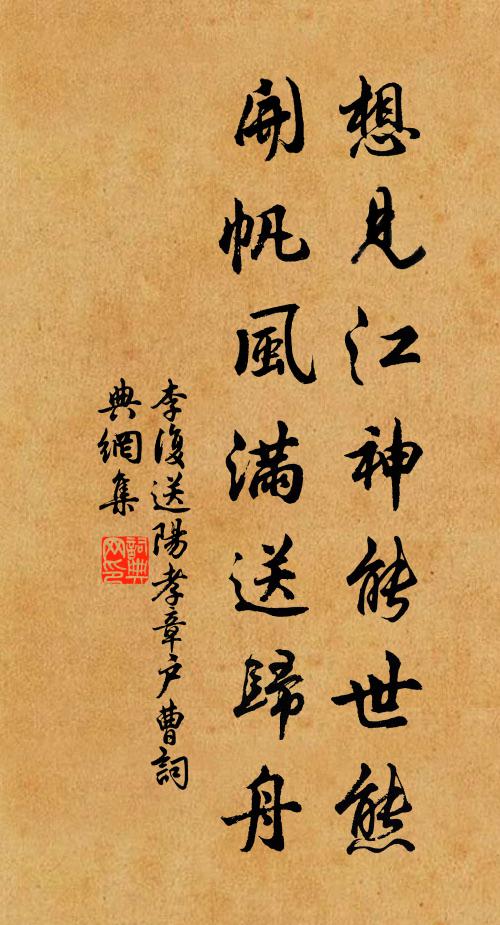 想見江神能世態
開帆風滿送歸舟
李復送陽孝章戶曹詞
典網集
詞典
网印